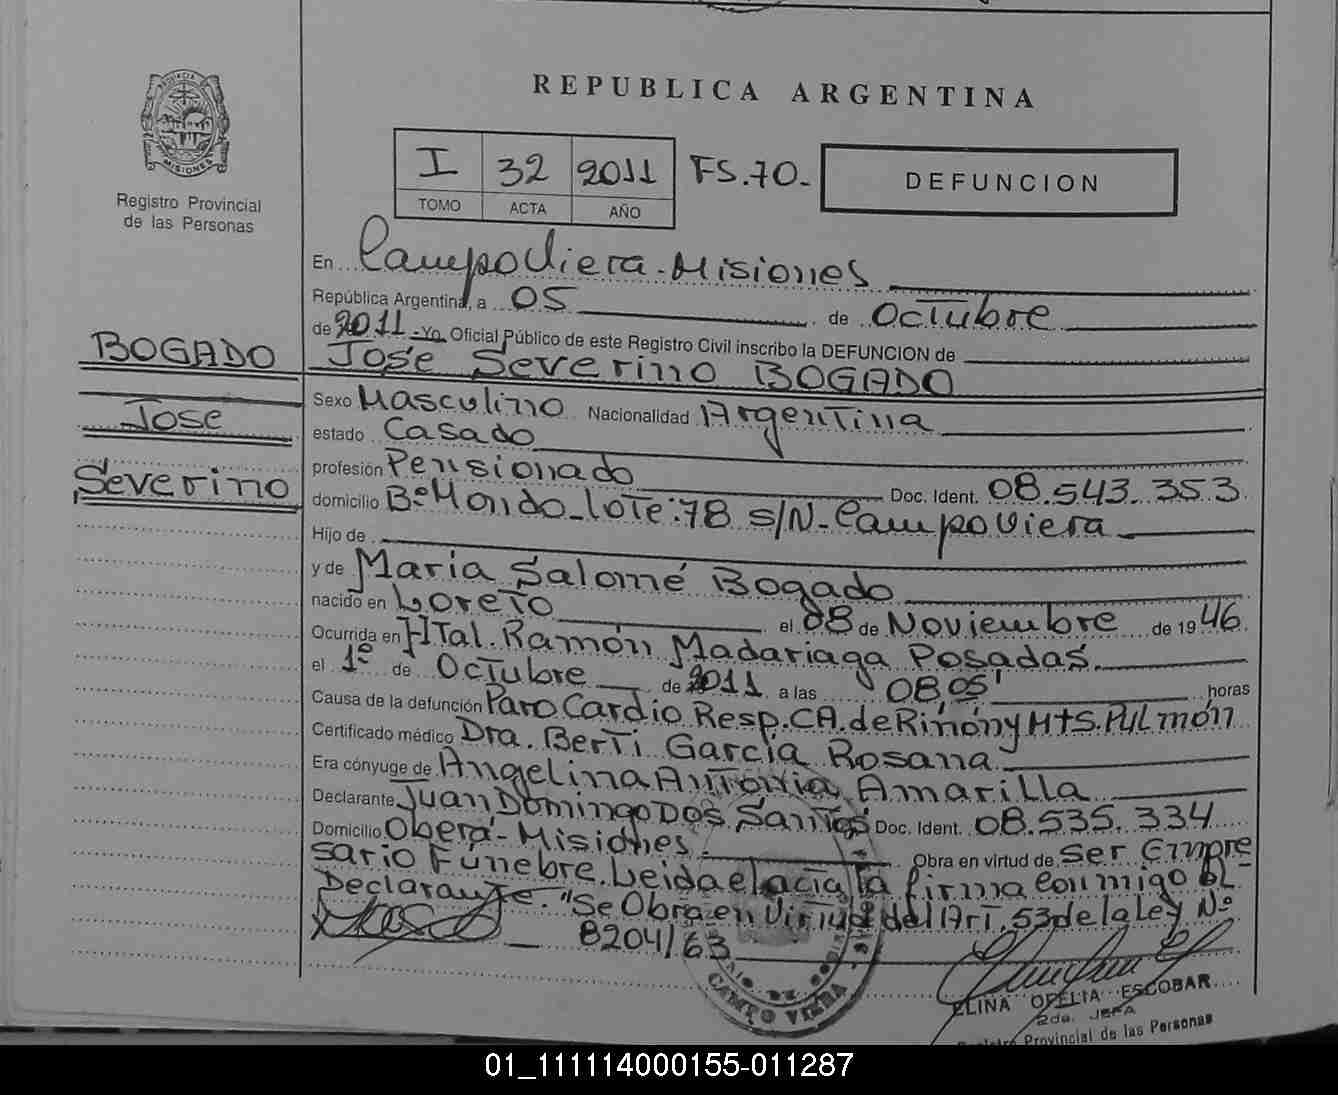 REPUBLICA ARGENTINA
PROVINCIA
MISIONES
Registro Provincial
de las Personas
I 32 2011 FS.70.-
TOMO ACTA AÑO
DEFUNCION
En Campo Viera - Misiones
República Argentina, a 05 de Octubre
de 2011 - Yo, Oficial Público de este Registro Civil inscribo la DEFUNCION de
BOGADO
José Severino BOGADO
Sexo Masculino Nacionalidad Argentina
Jose
estado Casado
Severino
profesión Pensionado Doc. Ident. 08.543.353
domicilio Bº Mondo - lote: 78 s/N - Campo Viera
Hijo de
y de Maria Salomé Bogado
nacido en Loreto el 08 de Noviembre de 1946
Ocurrida en HTal. Ramón Madariaga Posadas
el 1º de Octubre de 2011 a las 08,05' horas
Causa de la defunción Paro Cardio Resp. CA. de Riñón y MTS. Pulmón
Certificado médico Dra. Berti García Rosana
Era cónyuge de Angelina Antonia Amarilla
Declarante Juan Domingo Dos Santos Doc. Ident. 08.535.334
Domicilio Oberá - Misiones Obra en virtud de Ser Empre
sario Fúnebre. Leida el acta, la firma conmigo el
Declarante. "Se Obra en Virtud del Art. 53 de la Ley Nº
8204/63
CAMPO VIERA
ELINA OFELIA ESCOBAR
2da. JEFA
Registro Provincial de las Personas
01_111114000155-011287